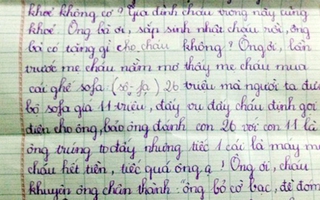 khoẻ không cơ? Gia đình cháu trong này cũng
khoẻ. Ông bà ơi, sắp sinh nhật cháu rồi, ông
bà có tặng gì cho cháu không? Ông ơi, lần
trước mẹ cháu nằm mơ thấy mẹ cháu mua
cái ghế sofa (sô-fa) 26 triệu mà người ta đưa
bộ sofa giá 11 triệu, đấy ru đấy cháu định gọi
điện cho ông, bảo ông đánh con 26 với con 11 là
ông trúng to đấy nhưng tiếc 1 cái là máy mẹ
cháu hết tiền, tiếc quá ông ạ! Ông ơi, cháu
khuyên ông chân thành: ông bỏ cờ bạc, đề đóm